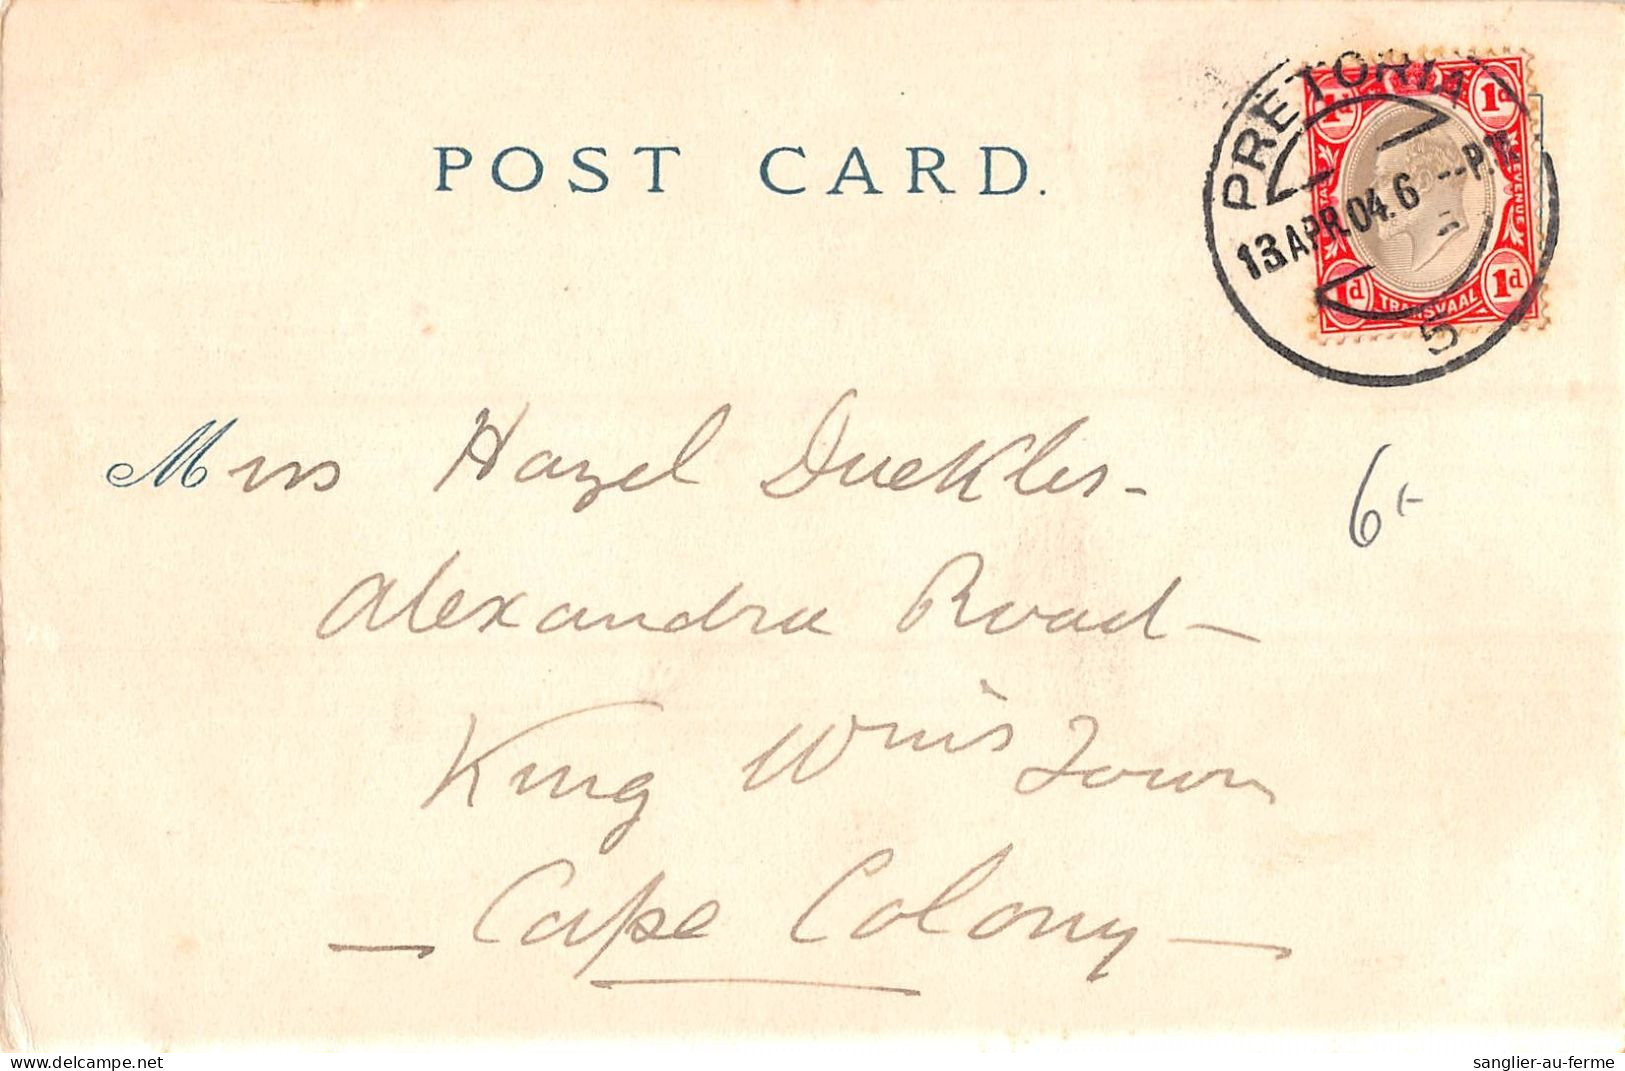 POST CARD.
PRETORIA
13 APR.04. 6 -- P.M.
5
1d 1d
REVENUE
1d 1d
TRANSVAAL
Miss Hazel Duckles -
6
Alexandra Road -
King Wms Town
- Cape Colony -
delcampe.net
sanglier-au-ferme